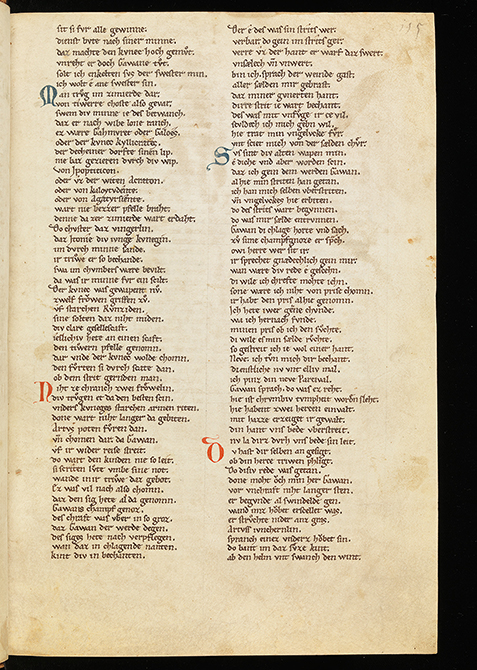 115
sit si fvr alle gewinne.
dienst bvte nach siner minne.
daz machte den kvnec hoch gemvt.
vnrehte er doch Gawane tvt.
solt ich enkelten svs der swester min.
ich wolt e ane swester sin.
Man trvg im zimierde dar.
von tiwerre choste also gevar.
swem div minne ie des betwanch.
daz er nach wibe lone ranch.
ez ware Gahmvret oder Galoes.
oder der kvnec kyllicrates.
der decheiner dorfte sinen lip.
nie baz gezieren dvrch div wip.
von Jpopotiticon.
oder vz der witen acraton.
oder von kalomidente.
oder von agatyrsiente.
wart nie bezzer pfelle braht.
denne da zer zimierde wart erdaht.
Do chvster daz vingerlin.
daz Jtonie div ivnge kvnegin.
im dvrch minne sande.
ir triwe er so bechande.
swa im chvmbers ware bevilt.
da was ir minne fvr ein schilt.
Der kvnec was gewapent nv.
zwelf frowen griffen zv.
vf starchen Rvnziden.
sine solten daz niht miden.
div clare geselleschaft.
ieslichiv hete an einen schaft.
den tiwern pfelle genomn.
dar vnde der kvnec wolde chomn.
den fvrten si dvrch scate dan.
ob dem strit gerndem man.
Niht ze chranch zwei frowelin.
div trvgen et da den besten sein.
vnders kvneges starchen armen riten.
done wart niht langer da gebiten.
Artvs poten fvren dan.
vn chomen dar da Gawan.
vf ir wider reise streit.
do wart den kinden nie so leit.
si scriten lvte vmbe sine not.
wande in ir triwe daz gebot.
Ez was vil nach also chomn.
daz den sig hete al da genomn.
Gawans champf genoz.
des chraft was vber in so groz.
daz Gawan der werde degen.
des siges hete nach verpflegen.
wan daz in chlagende nanten.
kint div in bechanten.
Der e des was sin strits wer.
verbar do gein im strits ger.
verre vz der hant er warf daz swert.
vnsælech vn vnwert.
bin ich. sprach der weinde gast.
aller sælden mir gebrast.
daz miner gvnerten hant.
dirre strit ie wart bechant.
des was mit vnfvge ir ze vil.
scvldech ich mich geben wil.
hie trat min vngelvcke fvr.
vnt sciet mich von der sælden chvr.
Svs sint div alten wapen min.
e dicke vnd aber worden scin.
daz ich gein dem werden Gawan.
al hie min striten han getan.
ich han mich selben vberstriten.
vn vngelvckes hie erbiten.
do des strits wart begvnnen.
do was mir sælde entrvnnen.
Gawan di chlage horte vnd sach.
zv sime champfgnoze er sprach.
owi herre wer sit ir.
ir sprechet gnædechlich gein mir.
wan ware div rede e gescehn.
di wile ich chrefte mohte iehn.
sone ware ich niht von prise chomn.
ir habt den pris al hie genomn.
Jch hete iwer gerne chvnde.
wa ich hernach fvnde.
minen pris ob ich den svchte.
di wile es min sælde rvchte.
so gestreit ich ie wol einer hant.
Neve. ich tvn mich dir bechant.
dienstliche nv vnt elliv mal.
ich pinz din neve Parcival.
Gawan sprach. do was ez reht.
hie ist chrvmbiv tvmpheit worden sleht.
hie habent zwei herzen einvalt.
mit hazze erzeiget ir gewalt.
din hant vns bede vberstreit.
nv la dirz dvrh vns bede sin leit.
Dv hast dir selben an gesigt.
ob din herze triwen phligt.
Do disiv rede was getan.
done moht ovch min her Gawan.
vor vnchraft niht langer sten.
er begvnde al swindelde gen.
wand imz hovbet erscellet was.
er strvchte nider anz gras.
Artvss ivncherrlin.
spranch einez vnderz hovbet sin.
do bant im daz svze kint.
ab den helm vnt swanch den wint.